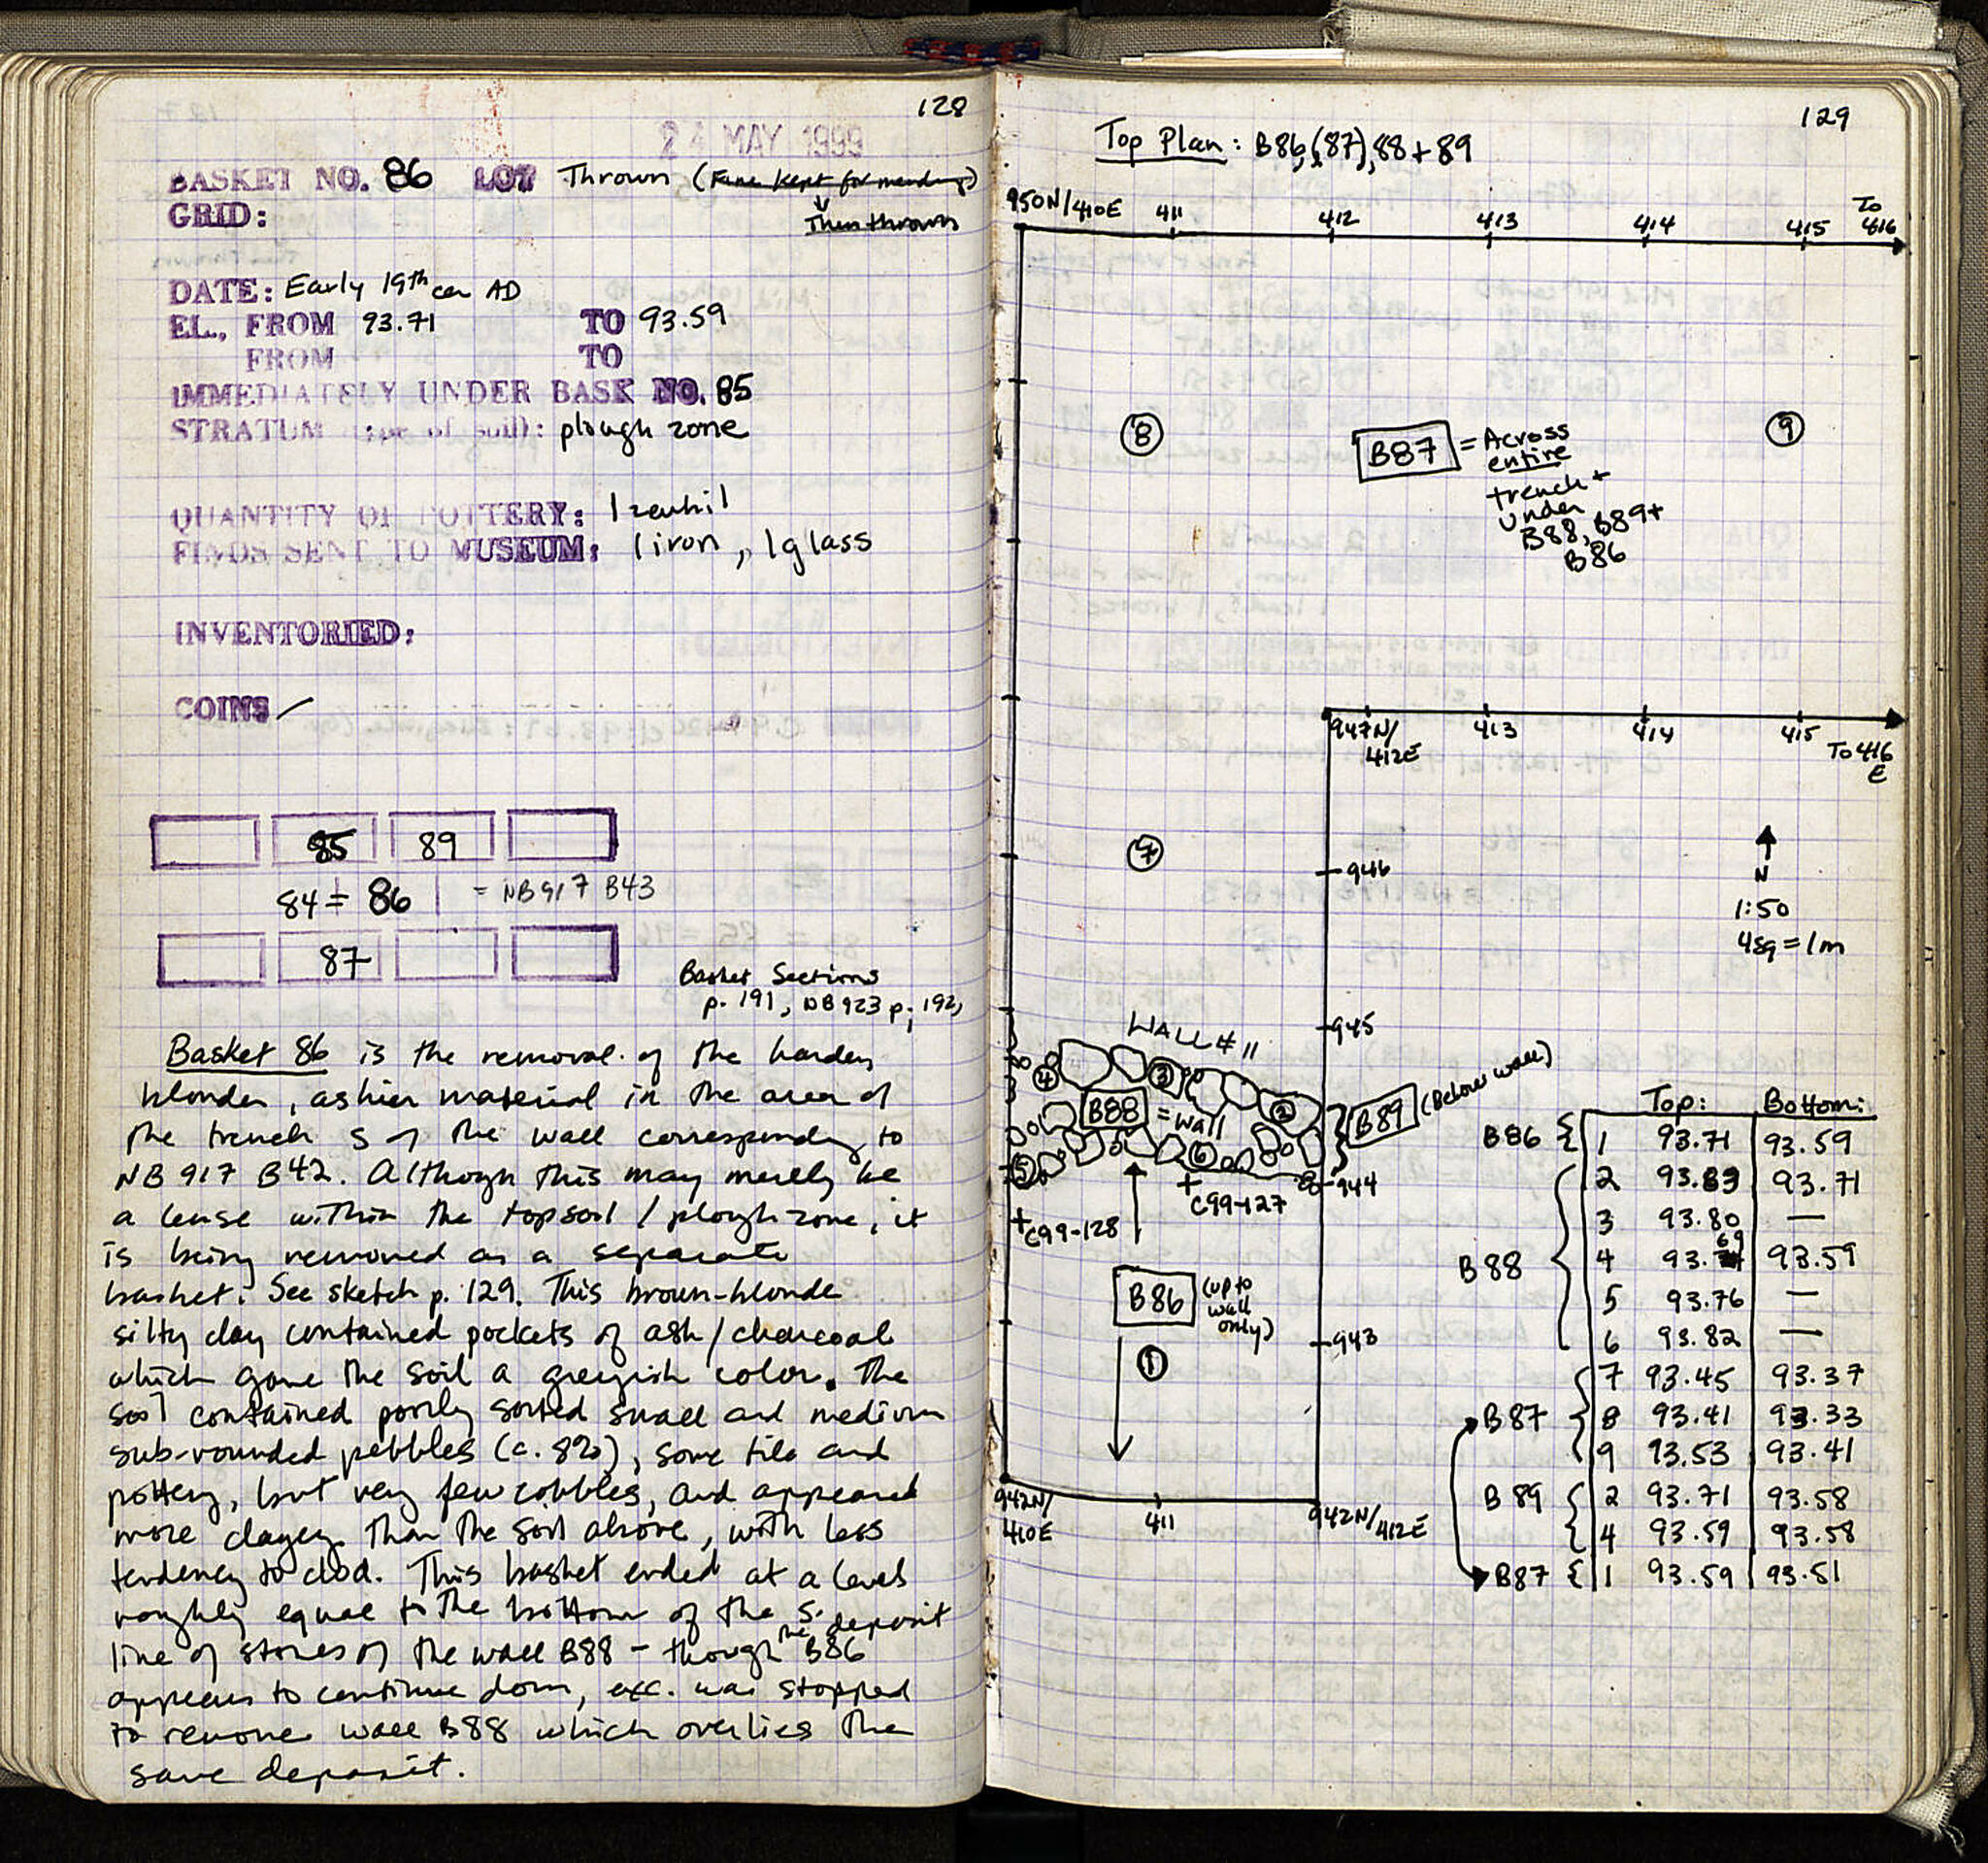 128
24 MAY 1999
BASKET NO. 86 LOT Thrown (Fine kept for mending)
GRID: Then thrown
DATE: Early 19th cen AD
EL., FROM 93.71 TO 93.59
FROM TO
IMMEDIATELY UNDER BASK NO. 85
STRATUM (type of soil): plough zone
QUANTITY OF POTTERY: 1 zembil
FINDS SENT TO MUSEUM: 1 iron, 1 glass
INVENTORIED:
COINS
85 89
84 = 86 = NB 917 B43
87
Basket Sections
p. 191, NB 923 p. 192,
Basket 86 is the removal of the harder,
blonder, ashier material in the area of
the trench S of the wall corresponding to
NB 917 B42. Although this may merely be
a lense within the topsoil / plough zone, it
is being removed as a separate
basket. See sketch p. 129. This brown-blonde
silty clay contained pockets of ash/charcoal
which gave the soil a greyish color. The
soil contained poorly sorted small and medium
sub-rounded pebbles (c. 8%), some tile and
pottery, but very few cobbles, and appeared
more clayey than the soil above, with less
tendency to clod. This basket ended at a level
roughly equal to the bottom of the S.
line of stones of the wall B88 - though the B86 deposit
appears to continue down, exc. was stopped
to remove wall B88 which overlies the
same deposit.
129
Top Plan: B86, (87), 88 + 89
950N/410E 411 412 413 414 415 To 416
8
B87 = Across
entire
trench +
under
B88, B89 +
B86
9
947N/
412E
413 414 415 To 416
E
7
946
N
1:50
4sq = 1m
945
WALL # 11
4 3 2
B88 = wall
B89 (Below wall)
5 6
944
+ C99-127
+ C99-128
B86 (up to
wall
only)
943
1
942N/
410E
411
942N/412E
Top: Bottom:
B86 { 1 93.71 93.59
2 93.83 93.71
3 93.80 —
B88 4 93.69 93.59
5 93.76 —
6 93.82 —
7 93.45 93.37
B87 8 93.41 93.33
9 93.53 93.41
B89 2 93.71 93.58
4 93.59 93.58
B87 { 1 93.59 93.51